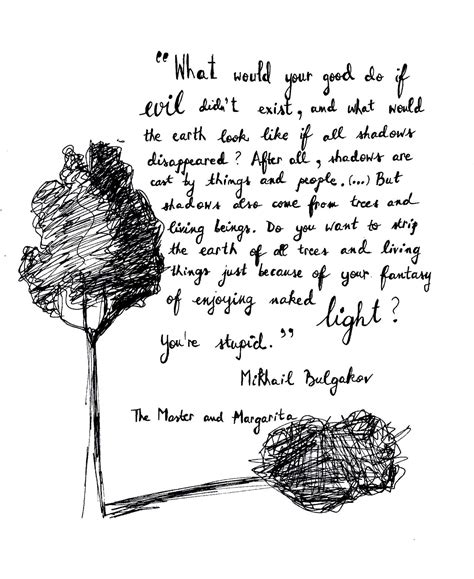 "What would your good do if
evil didn't exist, and what would
the earth look like if all shadows
disappeared? After all, shadows are
cast by things and people.(...) But
shadows also come from trees and
living beings. Do you want to strip
the earth of all trees and living
things just because of your fantasy
of enjoying naked light?
You're stupid."
Mikhail Bulgakov
The Master and Margarita